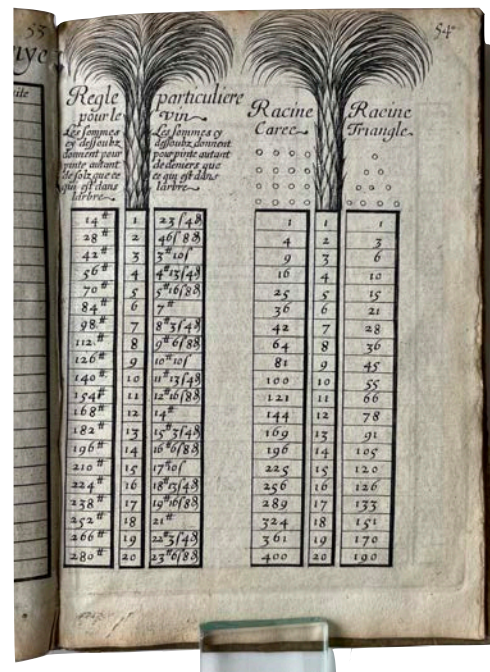 53
nyc
uite
54
Regle particuliere
pour le vin
Les sommes
cy dessoubz
donnent pour
pinte autant
de solz que ce
qui est dans
larbre
Les sommes cy
dessoubz donnent
pour pinte autant
de deniers que
ce qui est dans
larbre
14# 1 23ſ4₰
28# 2 46ſ8₰
42# 3 3#10ſ
56# 4 4#13ſ4₰
70# 5 5#16ſ8₰
84# 6 7#
98# 7 8#3ſ4₰
112# 8 9#6ſ8₰
126# 9 10#10ſ
140# 10 11#13ſ4₰
154# 11 12#16ſ8₰
168# 12 14#
182# 13 15#3ſ4₰
196# 14 16#6ſ8₰
210# 15 17#10ſ
224# 16 18#13ſ4₰
238# 17 19#16ſ8₰
252# 18 21#
266# 19 22#3ſ4₰
280# 20 23#6ſ8₰
Racine Racine
Carec Triangle
1 1 1
4 2 3
9 3 6
16 4 10
25 5 15
36 6 21
42 7 28
64 8 36
81 9 45
100 10 55
121 11 66
144 12 78
169 13 91
196 14 105
225 15 120
256 16 126
289 17 133
324 18 151
361 19 170
400 20 190